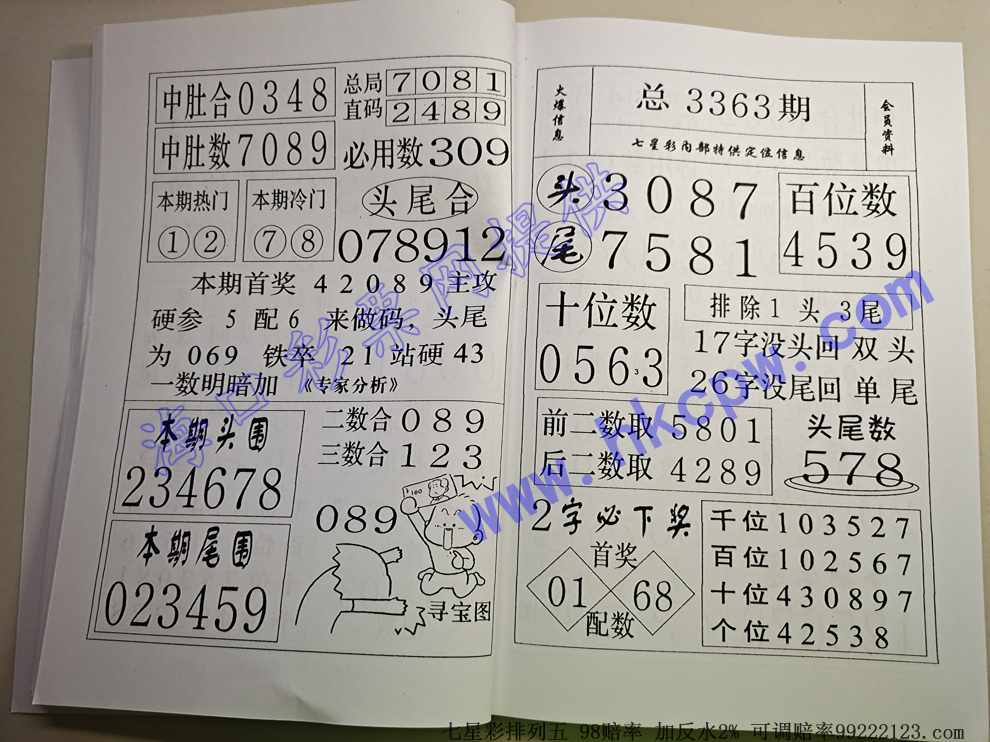 中肚合0348
总局7081
直码2489
中肚数7089
必用数309
本期热门
①②
本期冷门
⑦⑧
头尾合
078912
本期首奖 42089 主攻
硬参 5 配6 来做码，头尾
为 069 铁卒 21 站硬 43
一数明暗加 《专家分析》
本期头围
234678
二数合 089
三数合 123
本期尾围
023459
089
寻宝图
火爆信息
总 3363期
七星彩内部特供定位信息
会员资料
头 3087
尾 7581
百位数
4539
十位数
0563
排除1 头 3尾
17字没头回 双头
26字没尾回 单尾
前二数取 5801
后二数取 4289
头尾数
578
2字必下奖
首奖
01 68
配数
千位103527
百位102567
十位430897
个位42538
海口彩票网提供
www.hkcpw.com
七星彩排列五 98赔率 加反水2% 可调赔率99222123.com